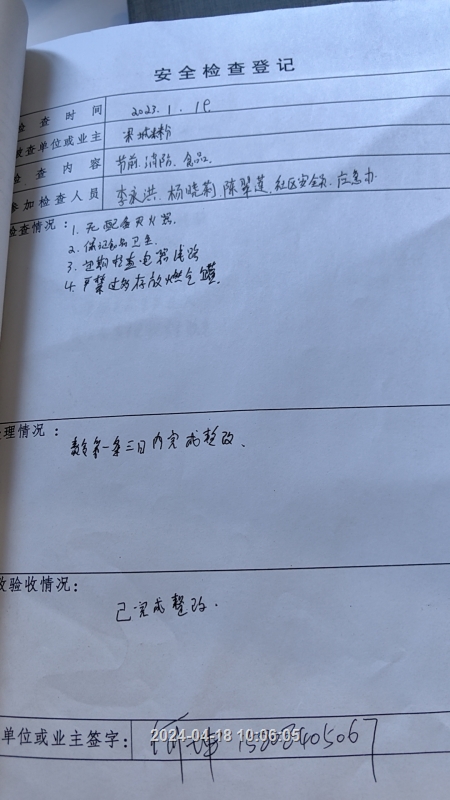 安全检查登记
检查时间 2023.1.19
被查单位或业主
检查内容 节前.消防.食品.
参加检查人员 李永洪.杨晓莉.陈翠莲.社区安全员.应急办
检查情况: 1.无配备灭火器.
2.保证食品卫生.
3.定期检查电器线路
4.严禁过多存放燃气罐.
处理情况:
第一条三日内完成整改.
改验收情况:
已完成整改.
单位或业主签字:
2024-04-18 10:06:05